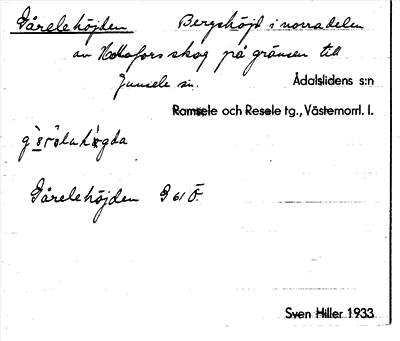 Gårelehöjden Bergshöjd i norra delen
av Hotfors skog på gränsen till
Junsele sn. Ådalslidens s:n
Ramsele och Resele tg., Västernorrl. l.
Gårelehöjden G 61 Ö.
Sven Hiller 1933